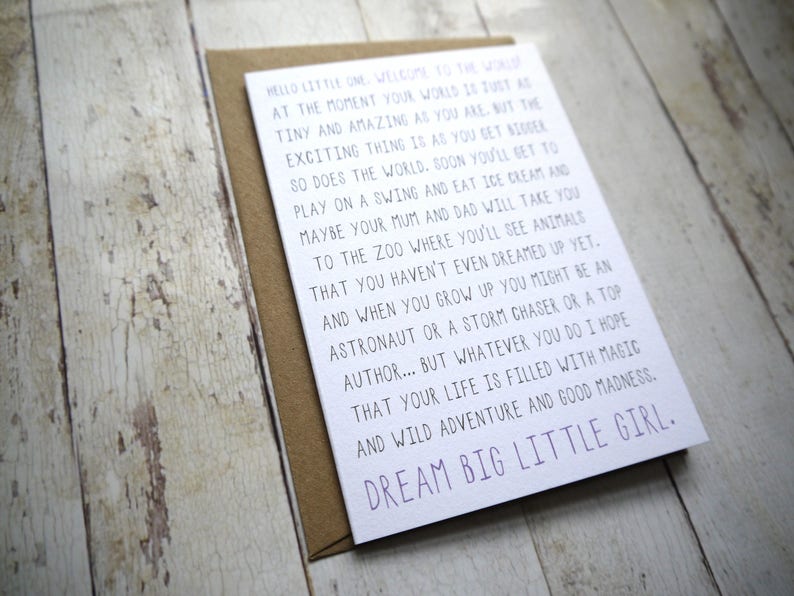 HELLO LITTLE ONE. WELCOME TO THE WORLD!
AT THE MOMENT YOUR WORLD IS JUST AS
TINY AND AMAZING AS YOU ARE. BUT THE
EXCITING THING IS AS YOU GET BIGGER
SO DOES THE WORLD. SOON YOU'LL GET TO
PLAY ON A SWING AND EAT ICE CREAM AND
MAYBE YOUR MUM AND DAD WILL TAKE YOU
TO THE ZOO WHERE YOU'LL SEE ANIMALS
THAT YOU HAVEN'T EVEN DREAMED UP YET.
AND WHEN YOU GROW UP YOU MIGHT BE AN
ASTRONAUT OR A STORM CHASER OR A TOP
AUTHOR... BUT WHATEVER YOU DO I HOPE
THAT YOUR LIFE IS FILLED WITH MAGIC
AND WILD ADVENTURE AND GOOD MADNESS.
DREAM BIG LITTLE GIRL.